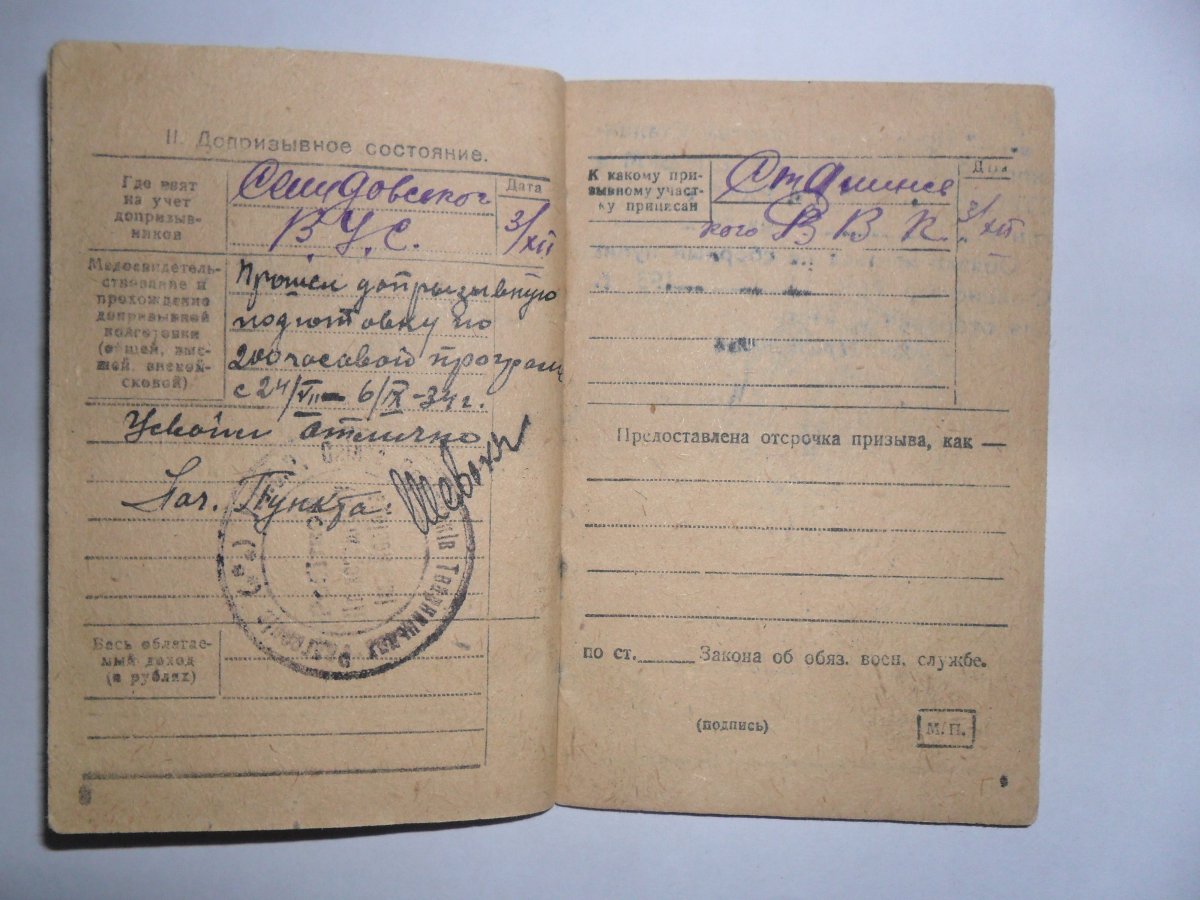 II. Допризывное состояние.
Где взят
на учет
допризыв-
ником
Дата
В У. С.
3/XII
Медосвидетель-
ствование и
прохождение
допризывной
подготовки
(общей, выс-
шей, внеой-
сковой)
Прошел допризывную
подготовку по
200 часовой програм
с 24/VII — 6/IX - 34 г.
Усвоил отлично
Нач. Пункта
Весь облагае-
мый доход
(в рублях)
К какому при-
зывному участ-
ку приписан
Сталинс
Дата
кого В В К.
3/XII
Предоставлена отсрочка призыва, как —
по ст. Закона об обяз. воен. службе.
(подпись)
М/П.